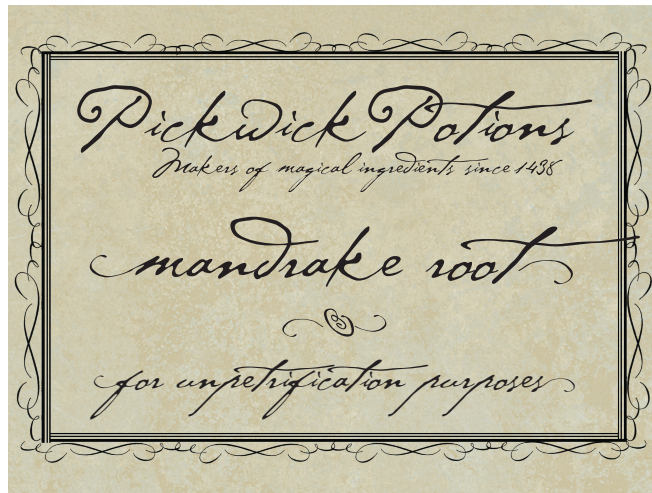 Pickwick Potions
Makers of magical ingredients since 1438
mandrake root
for unpetrification purposes